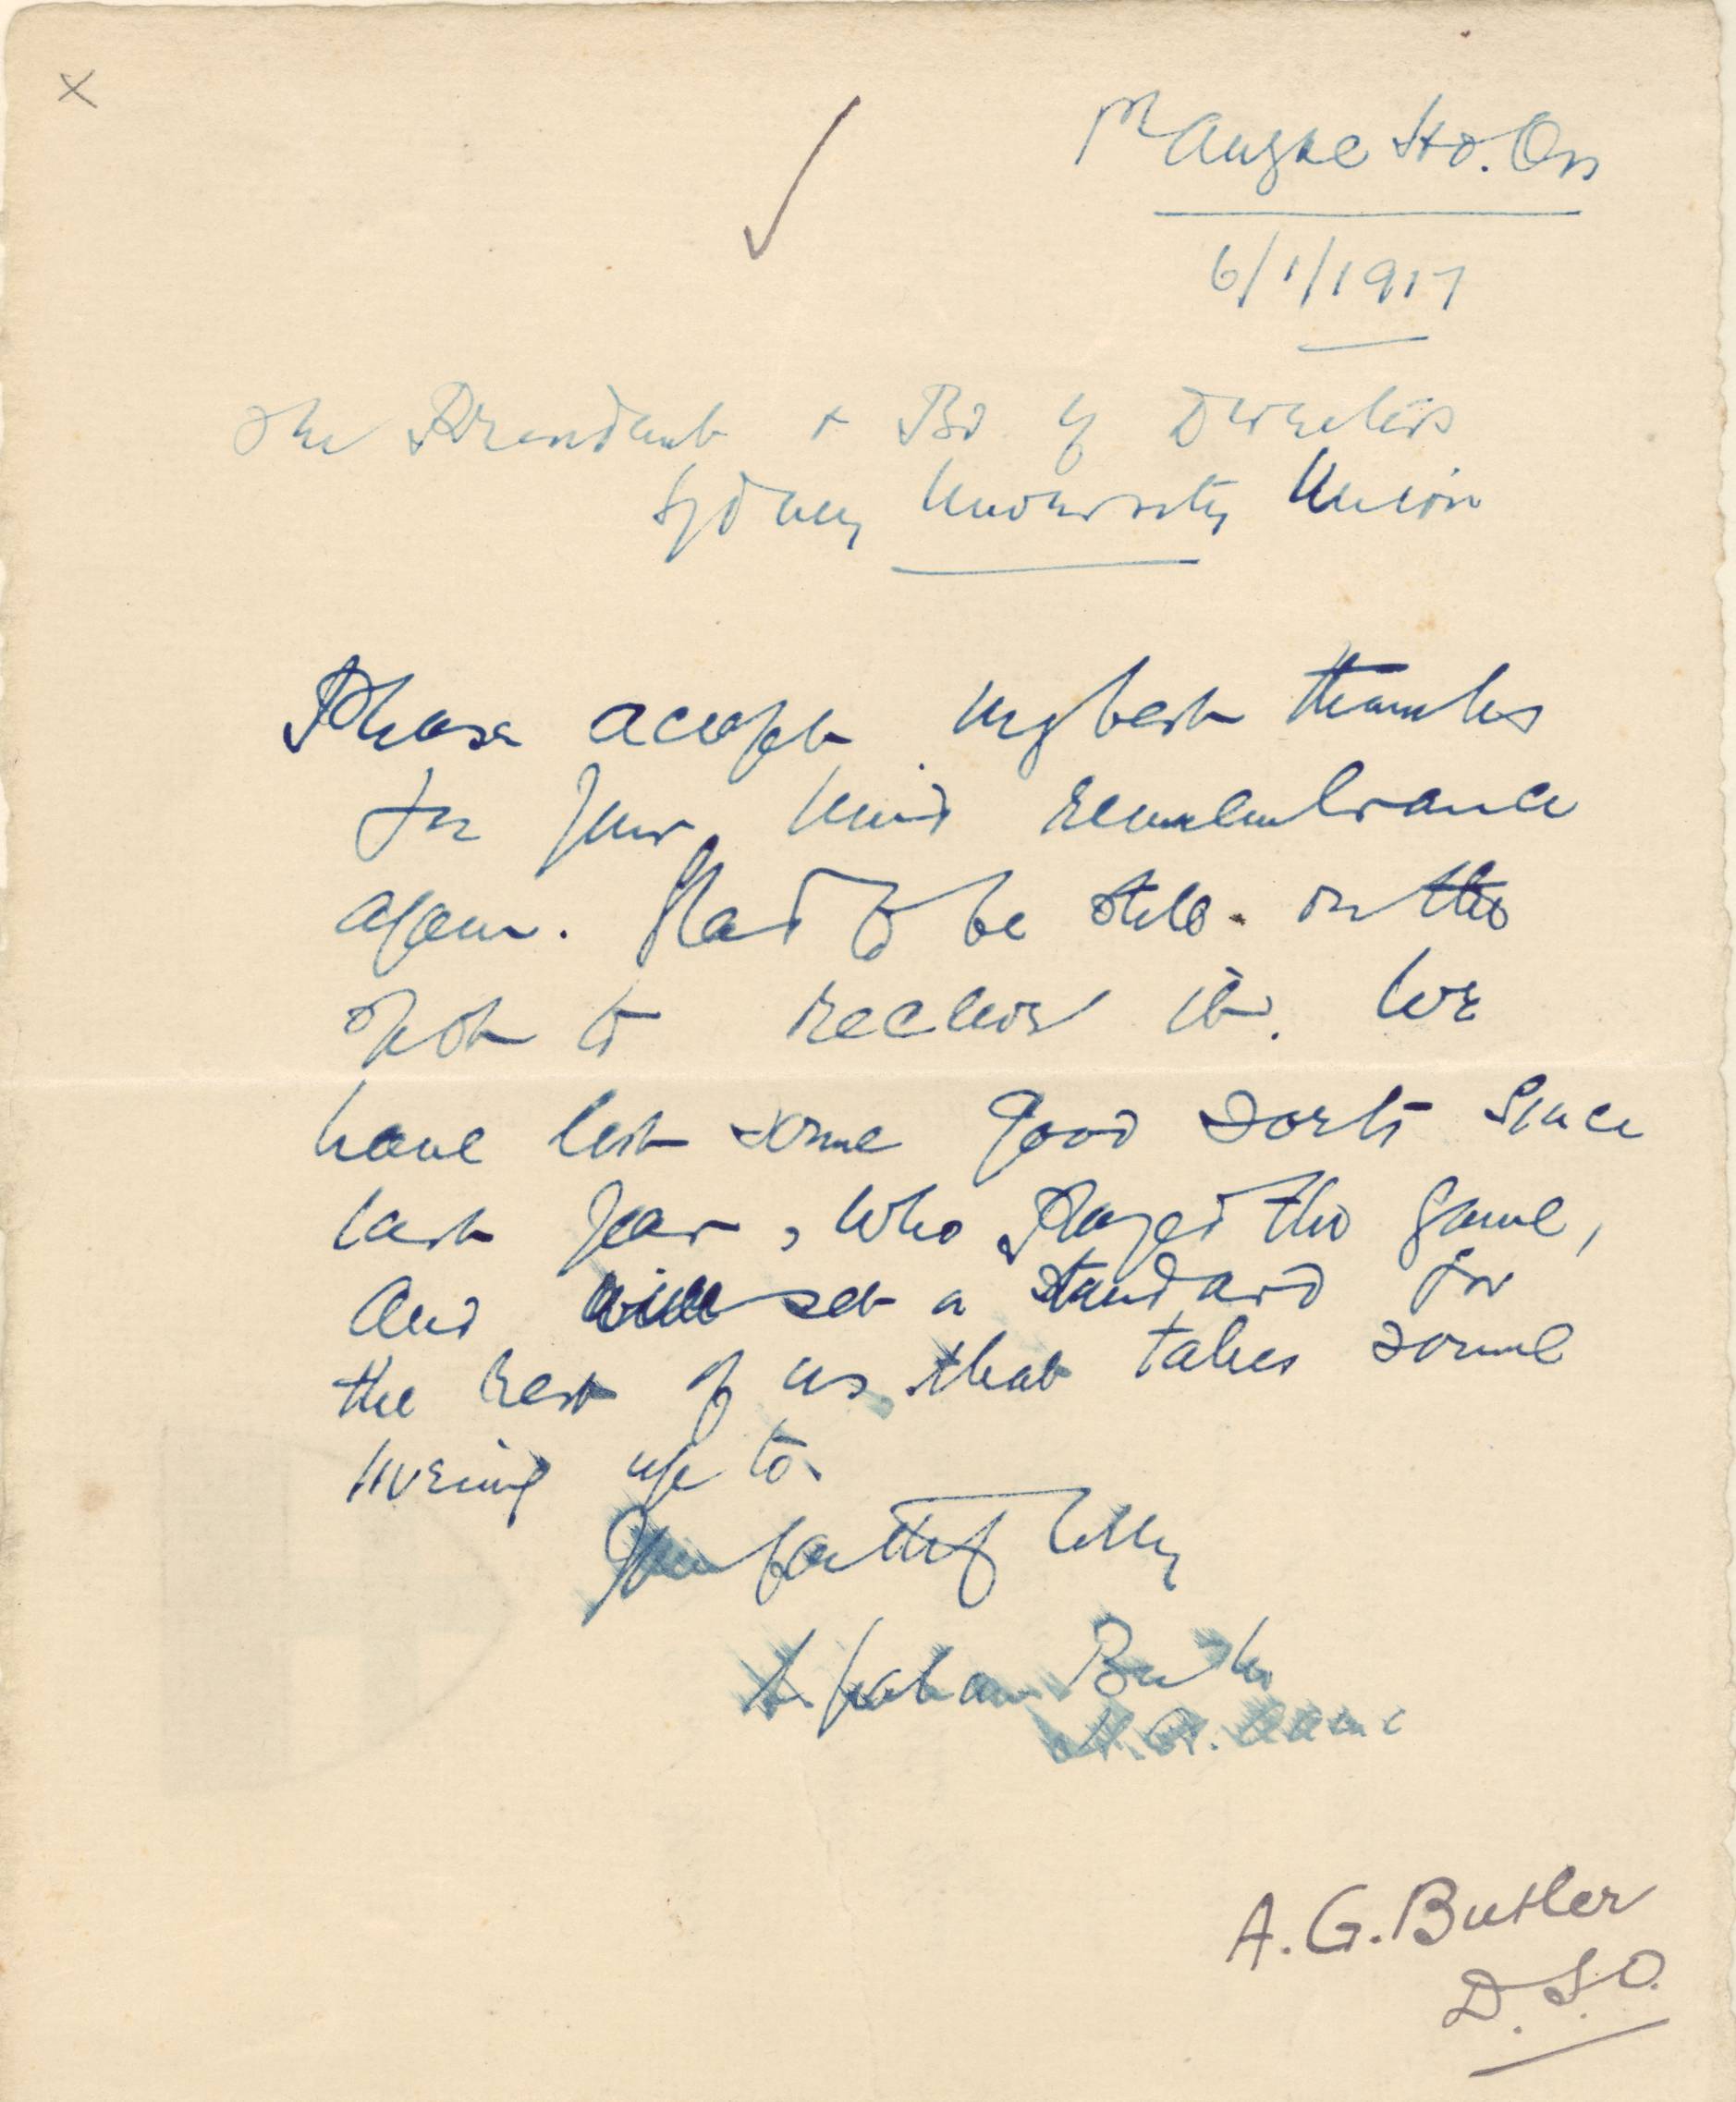 6/1/1917
The President & Bd of Directors
Sydney University Union
Please accept my best thanks
for your kind remembrance
again. Glad to be still on the
spot to receive it. We
have lost some good sorts since
last year, who played the game,
and will set a standard for
the rest of us that takes some
living up to.
Yours faithfully
A. Graham Butler
A.G. Butler
D.S.O.